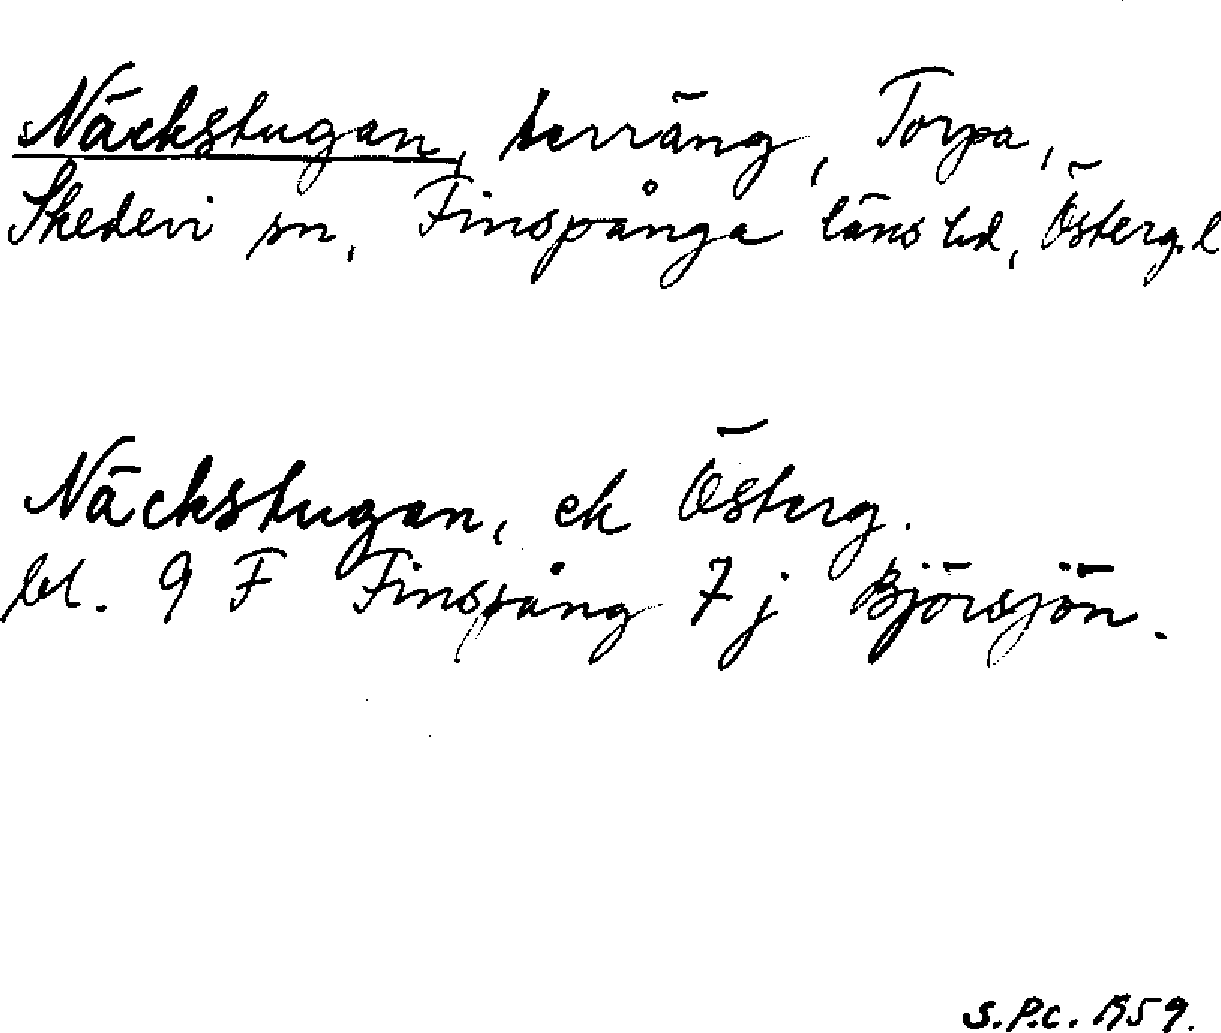 Näckstugan, terräng, Torpa,
Skedevi sn, Finspånga läns hd, Österg. l
Näckstugan, ek Österg.
bl. 9 F Finspång 7 j Björsjön.
S.P.C. 1959.